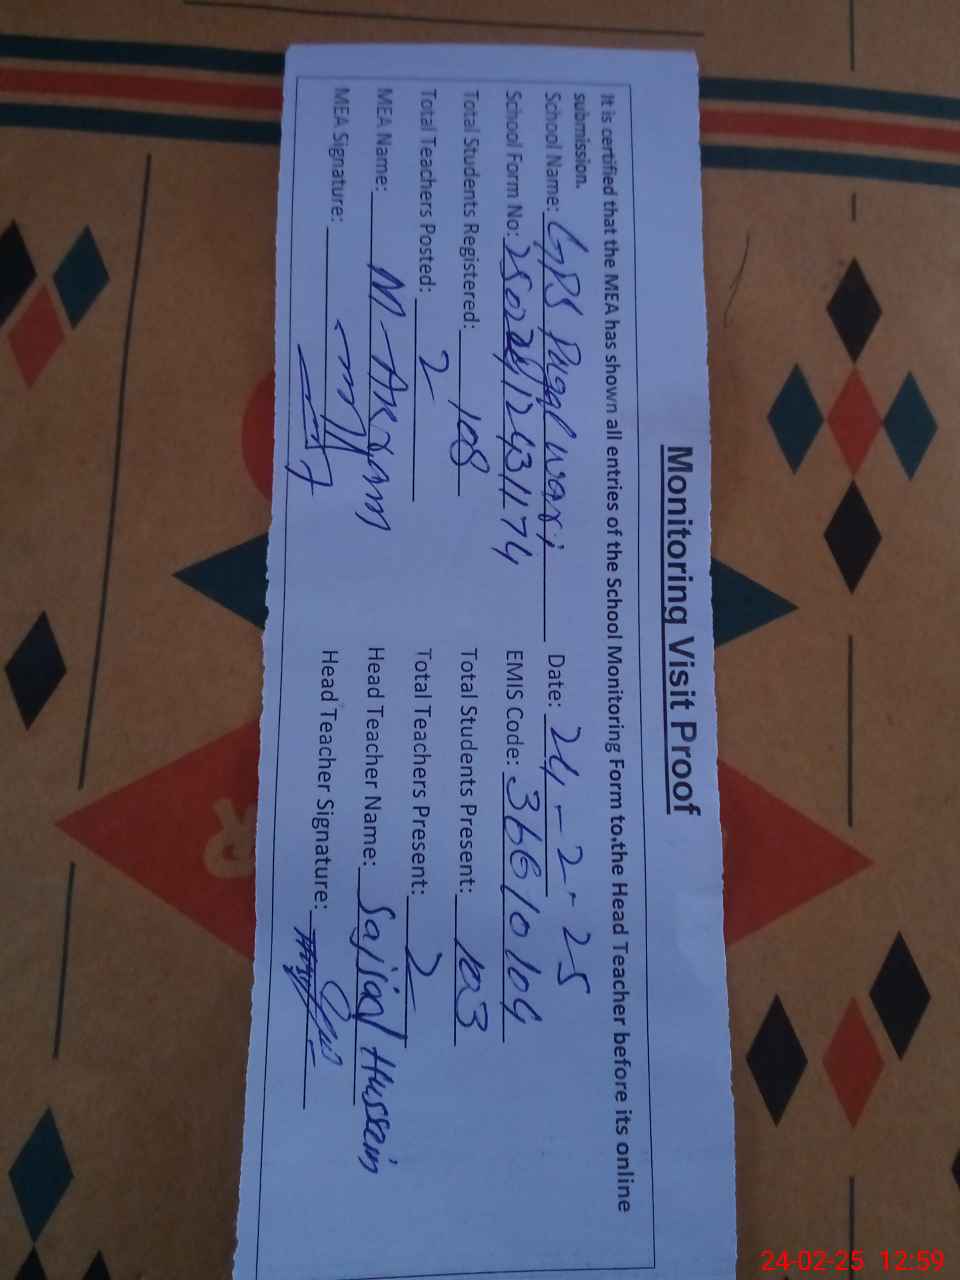 Monitoring Visit Proof
It is certified that the MEA has shown all entries of the School Monitoring Form to the Head Teacher before its online
submission.
School Name: GPS Paggal wari Date: 24-2-25
School Form No: EMIS Code: 36610104
Total Students Registered: 108 Total Students Present: 103
Total Teachers Posted: 2 Total Teachers Present: 2
MEA Name: M-Akram Head Teacher Name: Sajjad Hussain
MEA Signature: Head Teacher Signature:
24-02-25 12:59